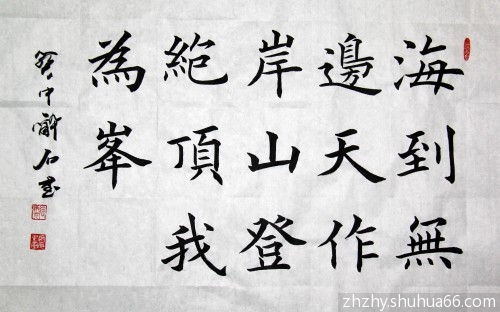 海到無
邊天作
岸山登
絶頂我
為峯
石
zhzhy.shuhua66.com